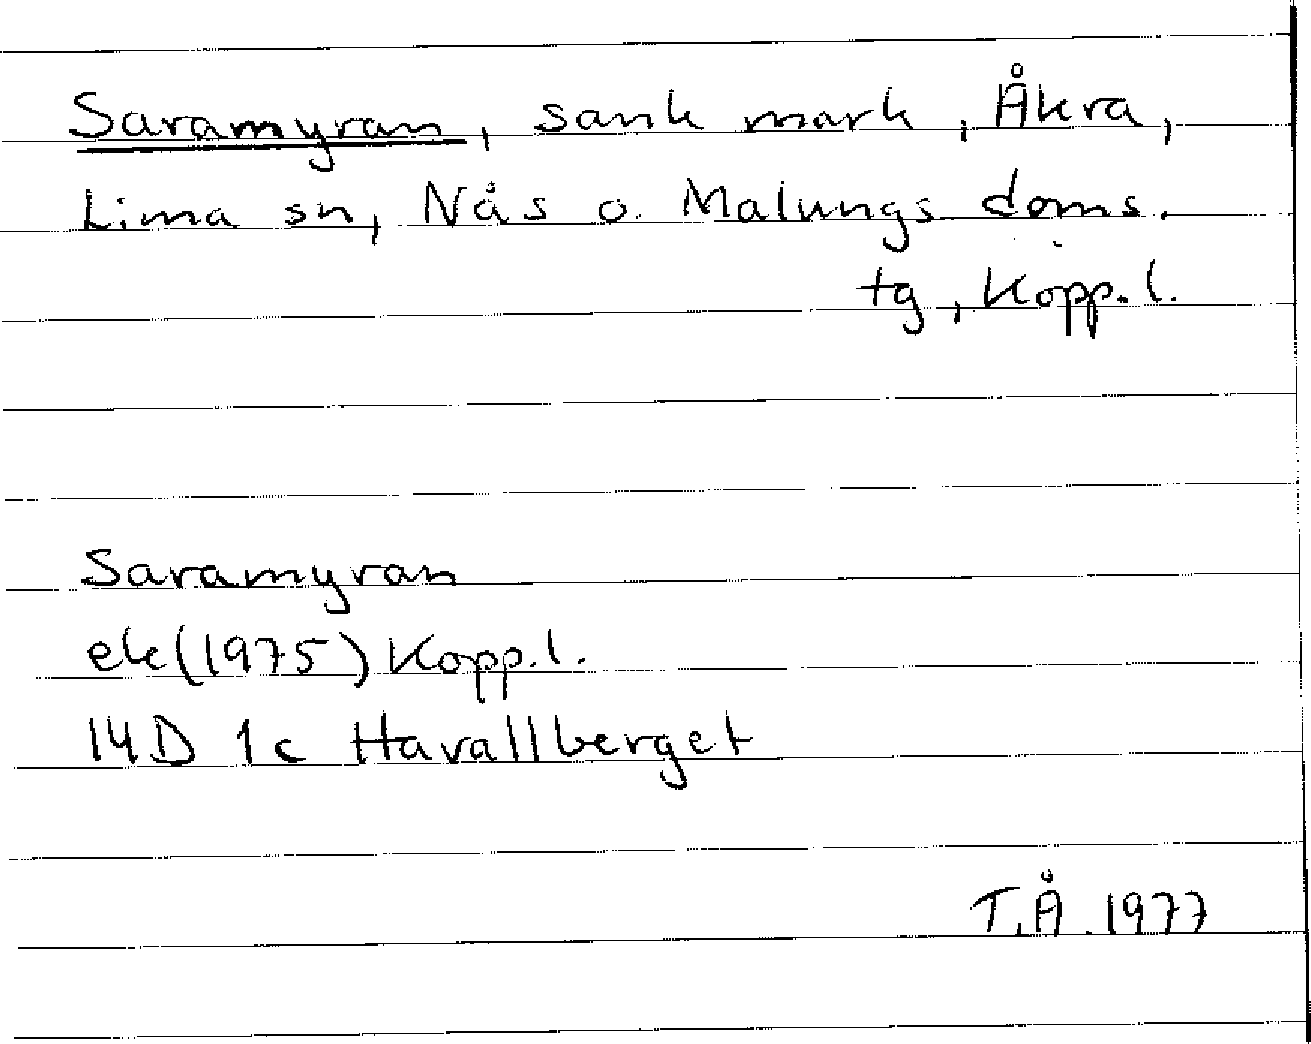 Saramyran, sank mark, Åkra,
Lima sn, Nås o. Malungs doms.
tg, Kopp.l.
Saramyran
ek(1975) Kopp.l.
14D 1c Havallberget
T.Å. 1977